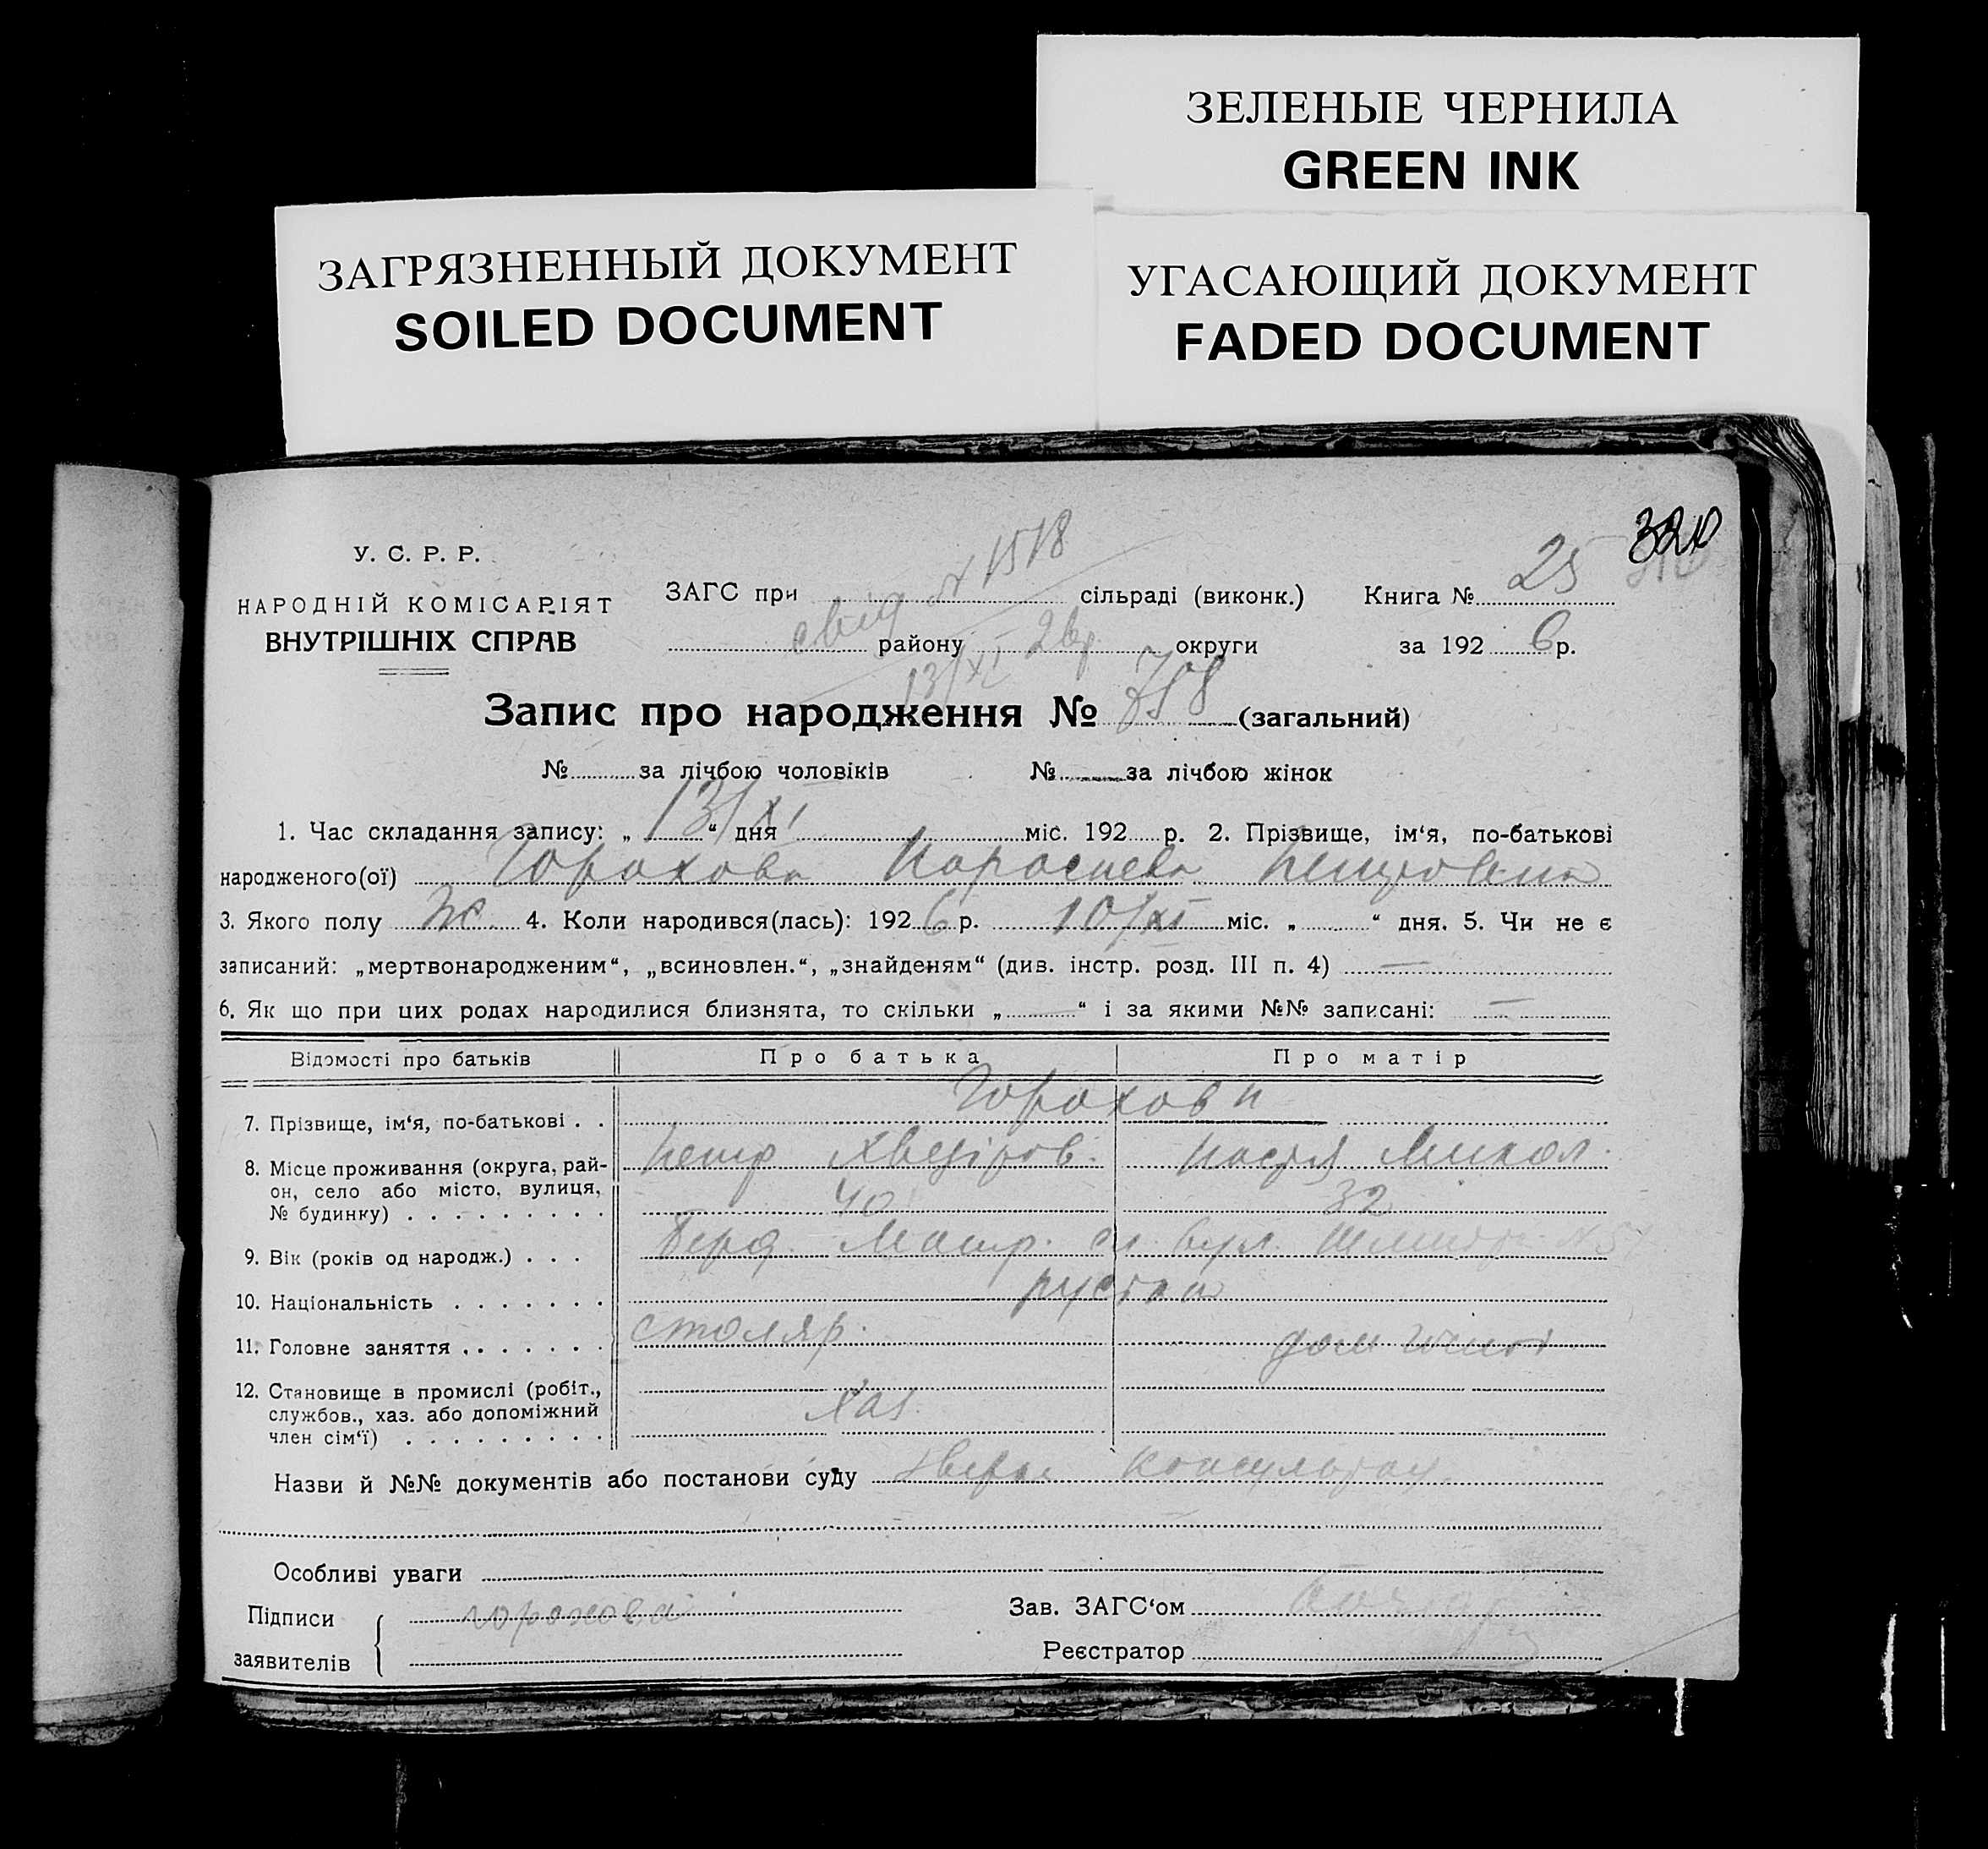 ЗЕЛЕНЫЕ ЧЕРНИЛА
GREEN INK
ЗАГРЯЗНЕННЫЙ ДОКУМЕНТ
SOILED DOCUMENT
УГАСАЮЩИЙ ДОКУМЕНТ
FADED DOCUMENT
320
У. С. Р. Р.
НАРОДНІЙ КОМІСАРІЯТ
ВНУТРІШНІХ СПРАВ
свід № 1518
13/XI
ЗАГС при сільраді (виконк.) Книга № 25
району округи за 1926 р.
Запис про народження № 758 (загальний)
№ за лічбою чоловіків № за лічбою жінок
1. Час складання запису: „ 13/XI “ дня міс. 192 р. 2. Прізвище, ім‘я, по-батькові
народженого(ої) Горохова Параскева Петровна
3. Якого полу ж. 4. Коли народився(лась): 1926 р. 10/XI міс. „ “ дня. 5. Чи не є
записаний: „мертвонародженим“, „всиновлен.“, „знайденям“ (див. інстр. розд. III п. 4) —
6. Як що при цих родах народилися близнята, то скільки „ “ і за якими №№ записані: —
Відомості про батьків Про батька Про матір
7. Прізвище, ім‘я, по-батькові . . Горохови
Петр Хведіров. Настя Микол.
8. Місце проживання (округа, рай-
он, село або місто, вулиця,
№ будинку) . . . . . . . . . 40 32
9. Вік (років од народж.) . . . Берд. вул.
10. Національність . . . . . . . руськи
11. Головне заняття . . . . . . . столяр. дом
12. Становище в промислі (робіт.,
службов., хаз. або допоміжний
член сім‘ї) . . . . . . . . . Хаз.
Назви й №№ документів або постанови суду
Особливі уваги
Підписи горохова Зав. ЗАГС‘ом
заявителів Реєстратор